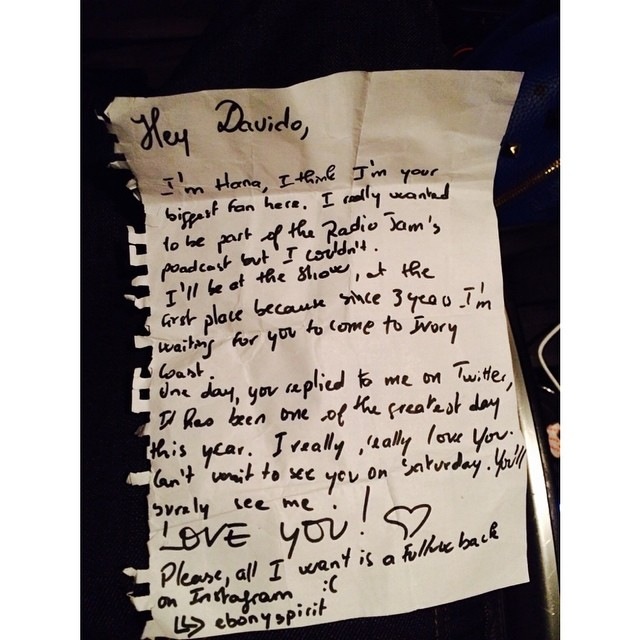 Hey Davido,
I'm Hana, I think I'm your
biggest fan here. I really wanted
to be part of the Radio Jam's
poadcast but I couldn't.
I'll be at the show, at the
first place because since 3 years I'm
waiting for you to come to Ivory
Coast.
One day, you replied to me on Twitter,
It has been one of the greatest day
this year. I really, really love you.
Can't wait to see you on Saturday. You'll
surely see me.
LOVE YOU! ♡
Please, all I want is a follow back
on Instagram :(
↳ ebonyspirit